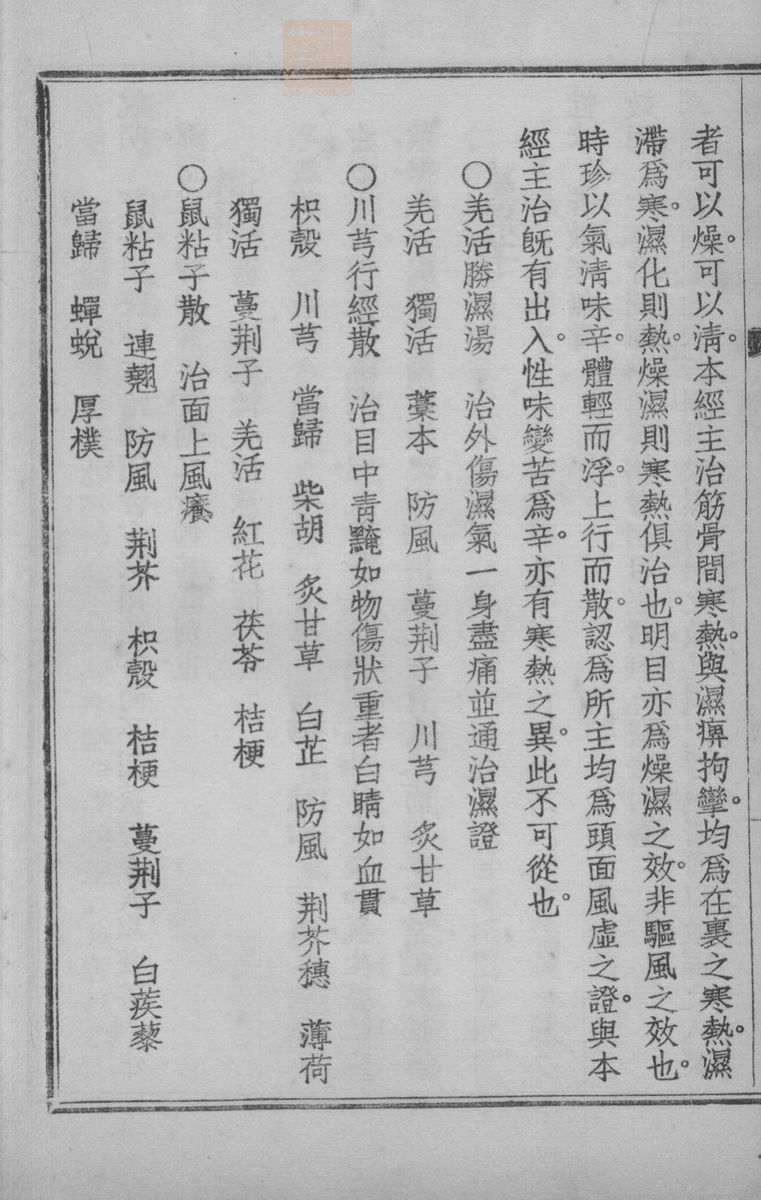 者可以燥。可以淸。本經主治筋骨間寒熱。與濕痹拘攣。均爲在裏之寒熱。濕
滯爲寒。濕化則熱。燥濕則寒熱俱治也。明目亦爲燥濕之效。非驅風之效也。
時珍以氣淸味辛。體輕而浮。上行而散。認爲所主均爲頭面風虛之證。與本
經主治旣有出入。性味變苦爲辛。亦有寒熱之異。此不可從也。
○羌活勝濕湯　治外傷濕氣一身盡痛並通治濕證
羌活　獨活　藁本　防風　蔓荆子　川芎　炙甘草
○川芎行經散　治目中靑黯如物傷狀重者白睛如血貫
枳殼　川芎　當歸　柴胡　炙甘草　白芷　防風　荆芥穗　薄荷
獨活　蔓荆子　羌活　紅花　茯苓　桔梗
○鼠粘子散　治面上風癢
鼠粘子　連翹　防風　荆芥　枳殼　桔梗　蔓荆子　白蒺藜
當歸　蟬蛻　厚樸